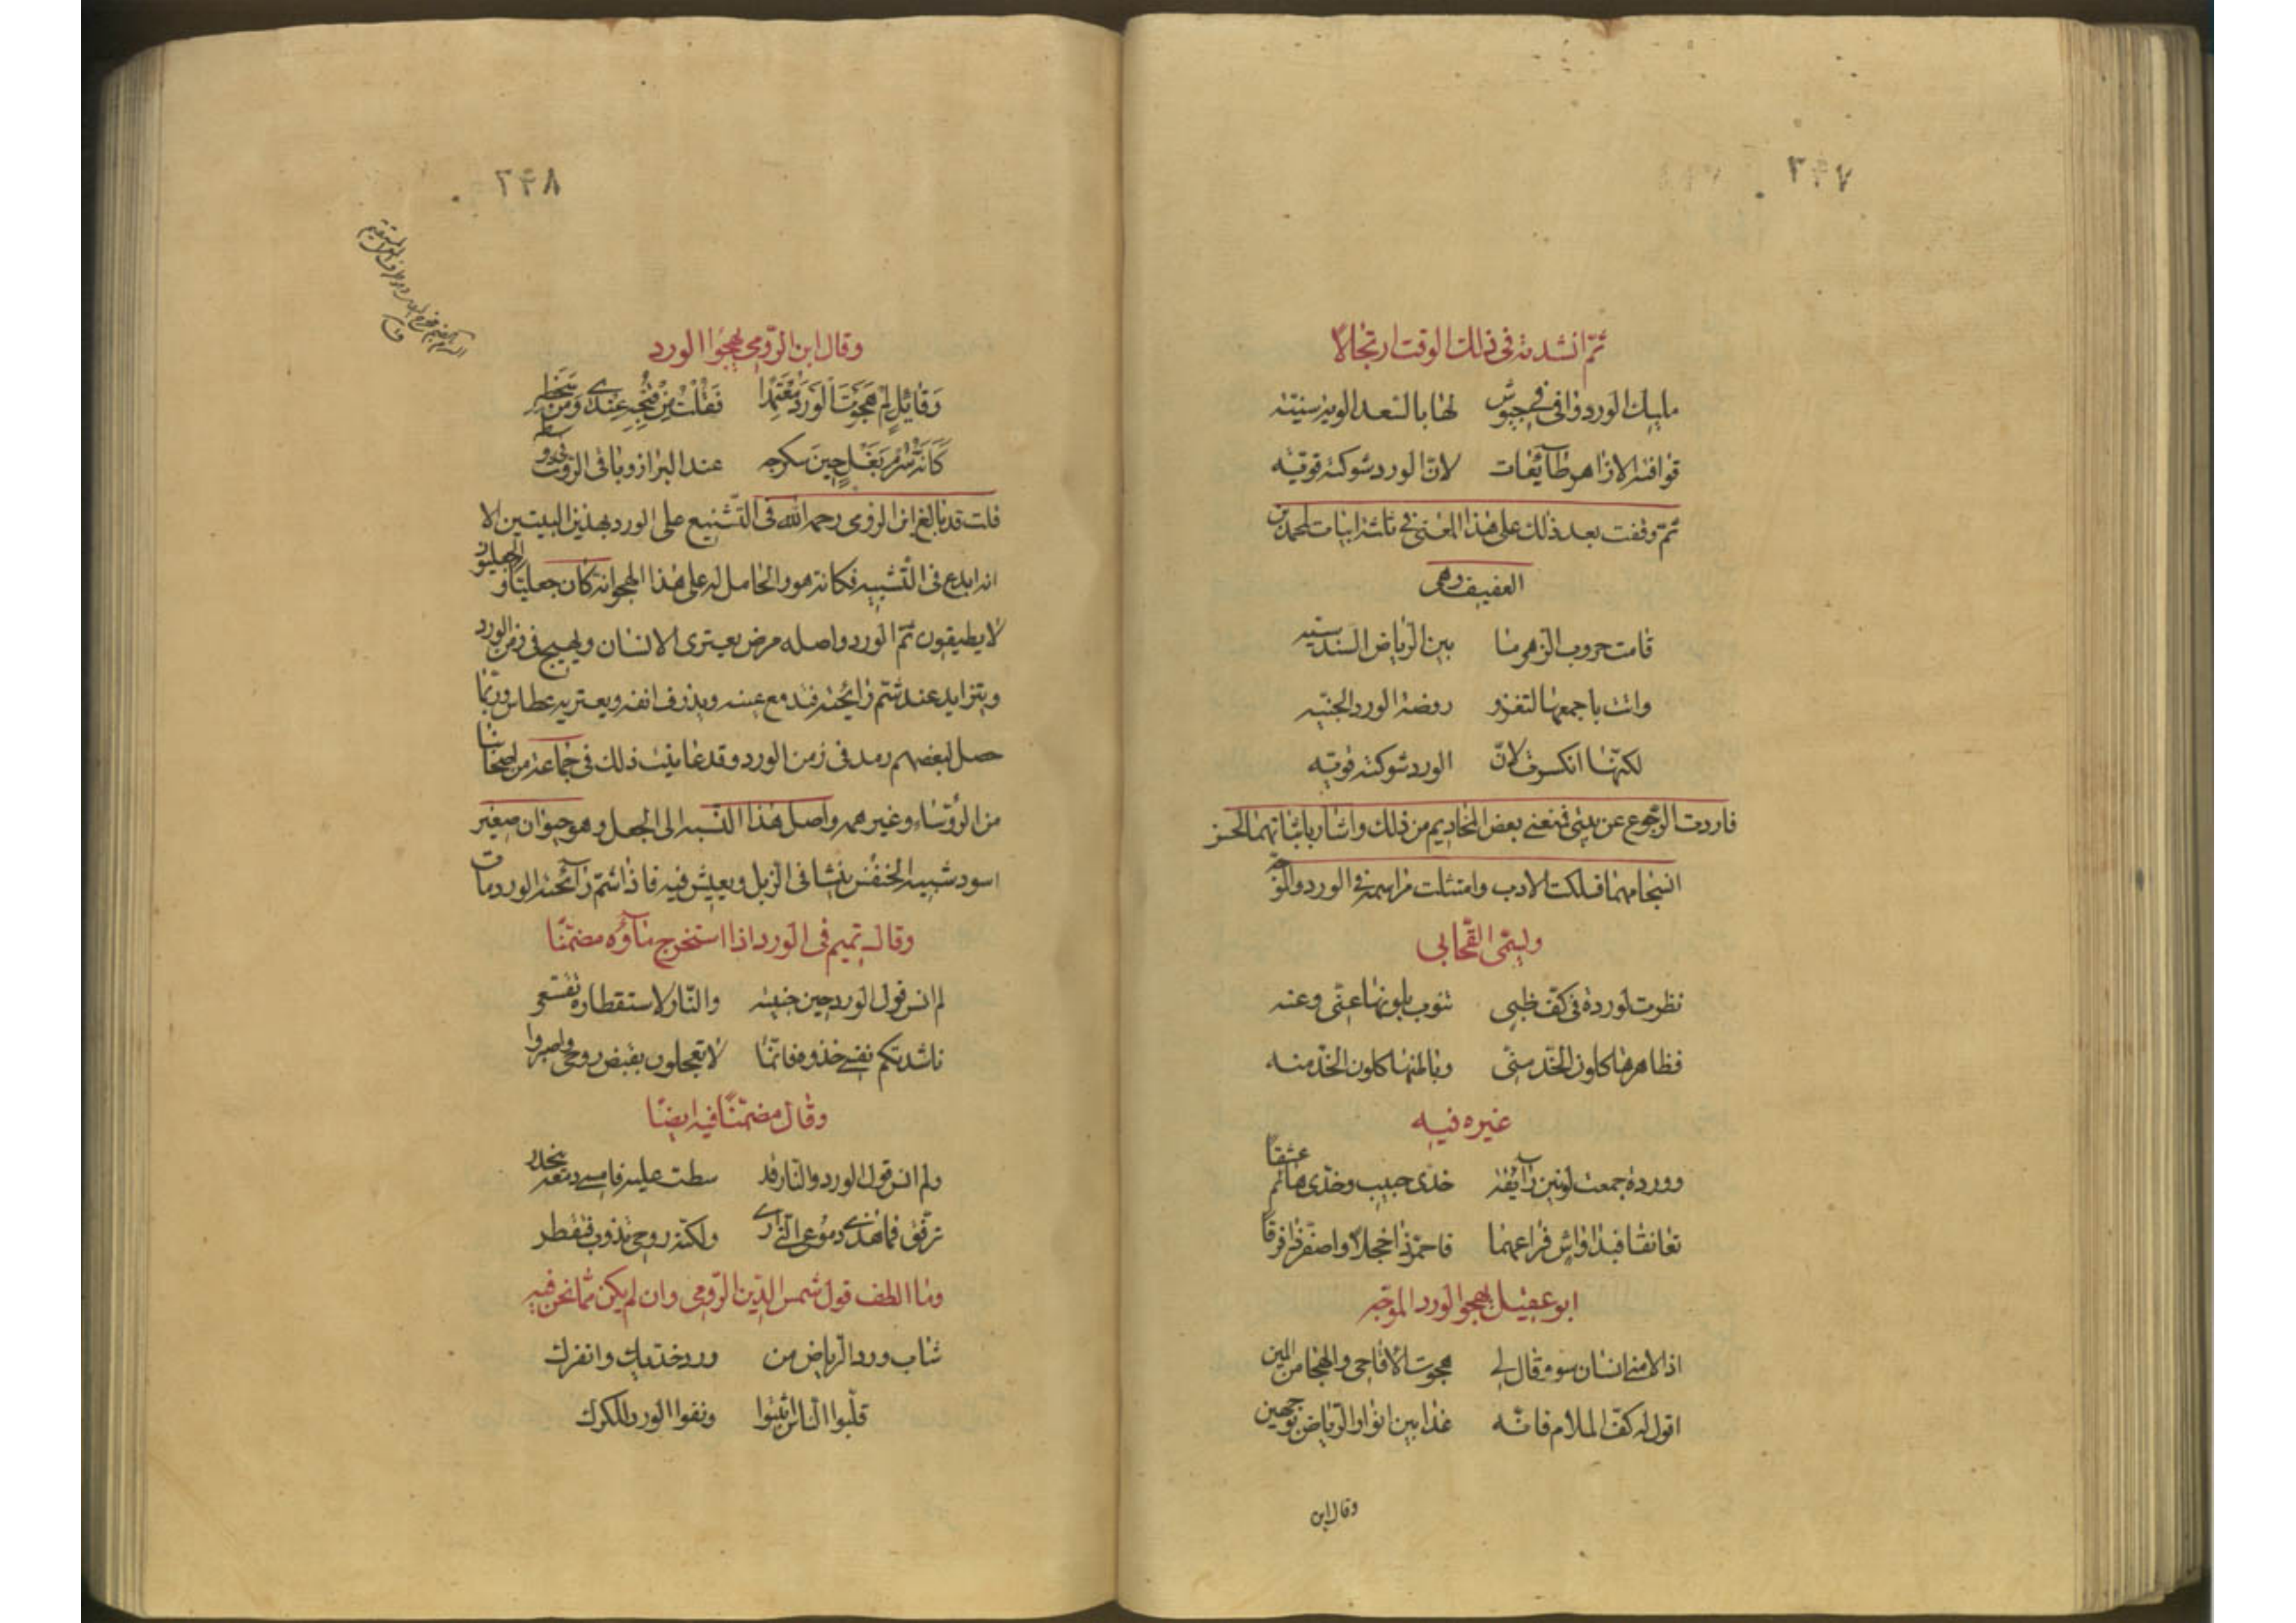 ٢٤٧
ثمّ انشدته فى ذلك الوقت ارتجالاً
مليك الورد وافى فى جيوش لها بالسعد الوية سنيّه
فوافته الازاهر طآئعات لانّ الورد شوكته قويّه
ثمّ وقفت بعد ذلك على هذا المعنى فى ثلثة ابيات لمحمد بن
العفيف وهى
قامت حروب الزهر ما بين الرياض السندسيّه
واتت باجمعها لتغزو روضة الورد الجنيّه
لكنّها انكسرت لانّ الورد شوكته قويّه
فاردت الرّجوع عن بيتىّ فمنعنى بعض المخاديم من ذلك واشار باثباتهما لحسن
انسجامهما فسلكت الادب وامتثلت مراسمه فى الورد والموجّه
وليحيى القحابى
نظرت لوردة فى كفّ ظبى تنوب بلونها عنّى وعنه
فظاهرها كلون الخدّ منّى وباطنها كلون الخدّ منه
غيره فيه
ووردة جمعت لونين رآئقة خدّى حبيب وخدّى هائم عشقاً
تعانقا فبدا واش فراعهما فاحمرّ ذا خجلاً واصفرّ ذا فرقاً
ابو عقيل يهجو الورد الموجّه
اذا لامنى انسان سوء وقال لى هجوت الاقاحى والهجا من المين
اقول له كفّ الملام فانّه غدا بين انوار الرياض بوجهين
وقال ابن
٢٤٨
وقال ابن الرّومى يهجوا الورد
وقائل لم هجوت الورد معتمدا فقلت من قبحه عندى ومن سخطه
كانّه سرم بغل حين سكرجه عند البراز وباقى الروث فى وسطه
قلت قد بالغ ابن الرومى رحمه الله فى التّشنيع على الورد بهذين البيتين الا
انه ابدع فى التّشبيه فكانه هو والحامل له على هذا الهجو انه كان جعليّا والجعليّون
لا يطيقون شمّ الورد واصله مرض يعترى الانسان ويهيج فى زمن الورد
ويتزايد عند شمّ رائحته فتدمع عينه ويذرف انفه ويعتريه عطاس وربّما
حصل لبعضهم رمد فى زمن الورد وقد عاينت ذلك فى جماعة من اصحابنا
من الرؤساء وغيرهم واصل هذا النسبة الى الجعل وهو حيوان صغير
اسود شبيه الخنفس ينشا فى الزبل ويعيش فيه فاذا شمّ رآئحة الورد مات
وقال تميم فى الورد اذا استخرج مآؤه مضمّنا
لم انس قول الورد حين جنيته والنّار لاستقطاره تتسعّر
ناشدتكم نفسى خذوه فانّما لا تعجلون بقبض روحى واصبروا
وقال مضمّناً فيه ايضًا
ولم انس قول الورد والنّار قد سطت عليه فامسى دمعه يتحدّر
ترفّق فما هذى دموعى الّتى ترى ولكنّه روحى تذوب فتقطر
وما الطف قول شمس الدّين الرّومى وان لم يكن ممّا نحن فيه
شاب ورد الرياض من ورد خدّيك وانفرك
قلبوا النّاس اثبتوا ونفوا الورد للكرك